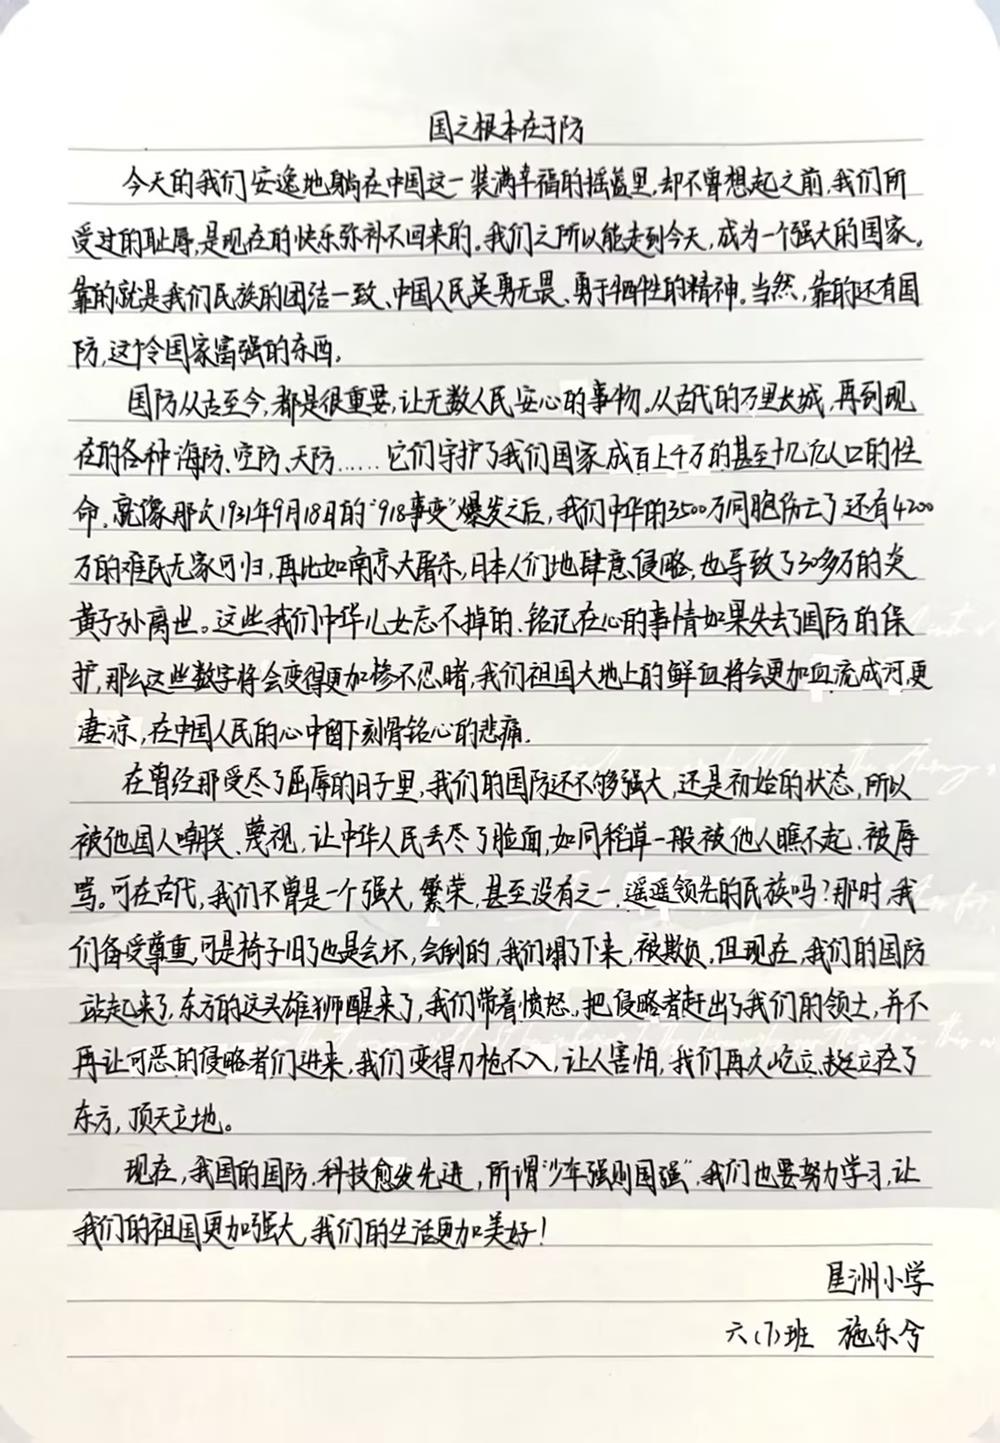 国之根本在于防
今天的我们安逸地躺在中国这一装满幸福的摇篮里,却不曾想起之前,我们所
受过的耻辱,是现在的快乐弥补不回来的。我们之所以能走到今天,成为一个强大的国家。
靠的就是我们民族的团结一致、中国人民英勇无畏、勇于牺牲的精神。当然,靠的还有国
防,这个令国家富强的东西.
国防从古至今,都是很重要,让无数人民安心的事物。从古代的万里长城,再到现
在的各种海防、空防、天防……它们守护了我们国家成百上千万的甚至十几亿人口的性
命.就像那次1931年9月18日的“918事变”爆发之后,我们中华的3500万同胞伤亡了还有4200
万的难民无家可归,再比如南京大屠杀,日本人们地肆意侵略,也导致了30多万的炎
黄子孙离世。这些我们中华儿女忘不掉的、铭记在心的事情如果失去了国防的保
护,那么这些数字将会变得更加惨不忍睹,我们祖国大地上的鲜血将会更加血流成河,更
凄凉,在中国人民的心中留下刻骨铭心的悲痛.
在曾经那受尽了屈辱的日子里,我们的国防还不够强大,还是初始的状态,所以
被他国人嘲笑、蔑视,让中华人民丢尽了脸面,如同稻草一般被他人瞧不起.被辱
骂。可在古代,我们不曾是一个强大,繁荣,甚至没有之一,遥遥领先的民族吗?那时,我
们备受尊重,可是椅子旧了也是会坏,会倒的,我们塌了下来,被欺负,但现在,我们的国防
站起来了,东方的这头雄狮醒来了,我们带着愤怒,把侵略者赶出了我们的领土,并不
再让可恶的侵略者们进来,我们变得刀枪不入,让人害怕,我们再次屹立,挺立在了
东方,顶天立地。
现在,我国的国防.科技愈发先进,所谓“少年强则国强”,我们也要努力学习,让
我们的祖国更加强大,我们的生活更加美好!
星洲小学
六(7)班 施乐兮